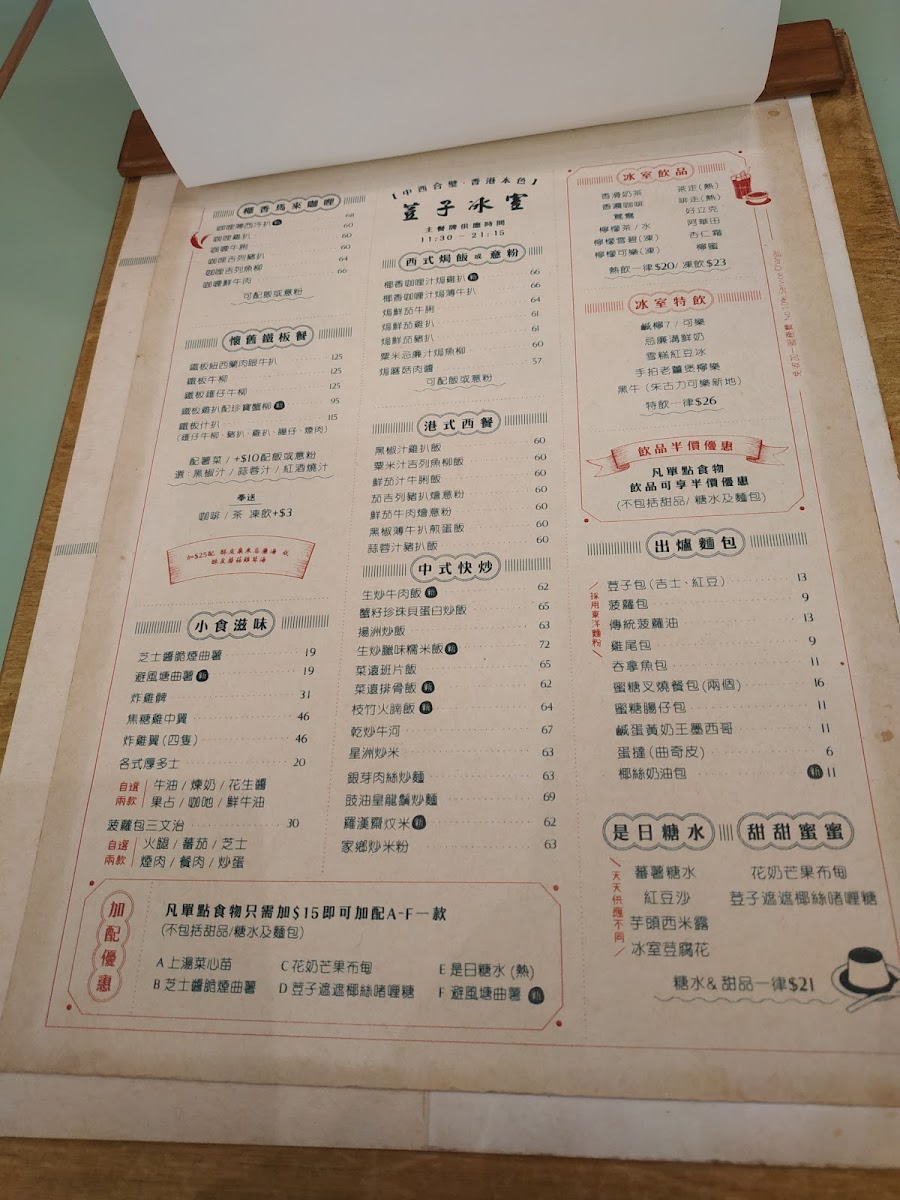 【中西合璧·香港本色】
荳子冰室
主餐牌供應時間
11:30 - 21:15
椰香馬來咖喱
68
咖喱雞扒 60
咖喱牛脷 60
咖喱吉列豬扒 64
咖喱吉列魚柳 66
咖喱鮮牛肉
可配飯或意粉
懷舊鐵板餐
鐵板紐西蘭肉眼牛扒 125
鐵板牛柳 125
鐵板雞仔牛柳 125
鐵板雞扒配珍寶蟹柳 95
鐵板什扒 115
(雞仔牛柳、豬扒、雞扒、腸仔、煙肉)
配薯菜 / +$10配飯或意粉
選:黑椒汁 / 蒜蓉汁 / 紅酒燒汁
奉送
咖啡 / 茶 凍飲+$3
小食滋味
芝士醬脆煙曲薯 19
避風塘曲薯 19
炸雞髀 31
焦糖雞中翼 46
炸雞翼 (四隻) 46
各式厚多士 20
自選兩款
牛油 / 煉奶 / 花生醬
果占 / 咖吔 / 鮮牛油
菠蘿包三文治 30
自選兩款
火腿 / 蕃茄 / 芝士
煙肉 / 餐肉 / 炒蛋
西式焗飯或意粉
椰香咖喱汁焗雞扒 66
椰香咖喱汁焗薄牛扒 66
焗鮮茄牛脷 64
焗鮮茄雞扒 61
焗鮮茄豬扒 61
粟米忌廉汁焗魚柳 60
焗蘑菇肉醬 57
可配飯或意粉
港式西餐
黑椒汁雞扒飯 60
粟米汁吉列魚柳飯 60
鮮茄汁牛脷飯 60
茄吉列豬扒燴意粉 60
鮮茄牛肉燴意粉 60
黑椒薄牛扒煎蛋飯 60
蒜蓉汁豬扒飯 60
中式快炒
生炒牛肉飯 62
蟹籽珍珠貝蛋白炒飯 65
揚洲炒飯 63
生炒臘味糯米飯 72
菜遠班片飯 65
菜遠排骨飯 62
枝竹火腩飯 64
乾炒牛河 67
星洲炒米 63
銀芽肉絲炒麵 63
豉油皇龍鬚炒麵 69
羅漢齋炆米 62
家鄉炒米粉 63
冰室飲品
香滑奶茶 茶走(熱)
香濃咖啡 啡走(熱)
鴛鴦 好立克
檸檬茶 / 水 阿華田
檸檬雪碧(凍) 杏仁霜
檸檬可樂(凍) 檸蜜
熱飲一律$20/ 凍飲$23
冰室特飲
鹹檸7 / 可樂
忌廉溝鮮奶
雪糕紅豆冰
手拍老薑煲檸樂
黑牛 (朱古力可樂新地)
特飲一律$26
飲品半價優惠
凡單點食物
飲品可享半價優惠
(不包括甜品/ 糖水及麵包)
出爐麵包
採用東洋麵粉
荳子包(吉士、紅豆) 13
菠蘿包 9
傳統菠蘿油 13
雞尾包 9
吞拿魚包 11
蜜糖叉燒餐包(兩個) 16
蜜糖腸仔包 11
鹹蛋黃奶王墨西哥 11
蛋撻(曲奇皮) 6
椰絲奶油包 11
是日糖水
天天供應不同
蕃薯糖水
紅豆沙
芋頭西米露
冰室荳腐花
甜甜蜜蜜
花奶芒果布甸
荳子遮遮椰絲啫喱糖
糖水& 甜品一律$21
加配優惠
凡單點食物只需加$15即可加配A-F一款
(不包括甜品/糖水及麵包)
A 上湯菜心苗 C 花奶芒果布甸 E 是日糖水 (熱)
B 芝士醬脆煙曲薯 D 荳子遮遮椰絲啫喱糖 F 避風塘曲薯